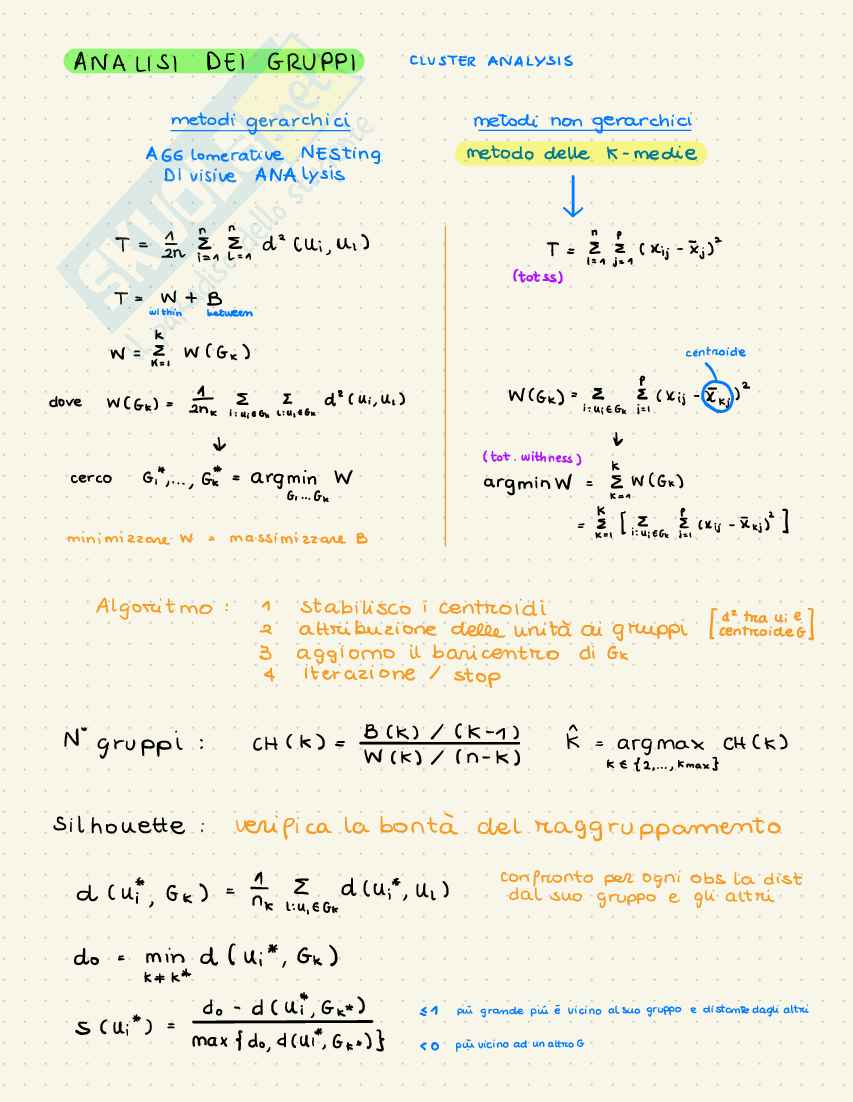 ANALISI DEI GRUPPI
CLUSTER ANALYSIS
metodi gerarchici
AGGlomerative NESting
DIvisive ANAlysis
T = 1/2n Σ_{i=1}^{n} Σ_{l=1}^{n} d² (ui, ul)
T = W + B
within between
W = Σ_{K=1}^{K} W(Gk)
dove W(Gk) = 1/2nk Σ_{i:ui∈Gk} Σ_{l:ul∈Gk} d²(ui, ul)
↓
cerco G1*,..., Gk* = argmin_{G1...Gk} W
minimizzare W = massimizzare B
metodi non gerarchici
metodo delle K-medie
↓
T = Σ_{i=1}^{n} Σ_{j=1}^{p} (xij - x̄j)²
(totss)
centroide
W(Gk) = Σ_{i:ui∈Gk} Σ_{j=1}^{p} (xij - x̄kj)²
↓
(tot. withness)
argmin W = Σ_{K=1}^{K} W(Gk)
= Σ_{K=1}^{K} [ Σ_{i:ui∈Gk} Σ_{j=1}^{p} (xij - x̄kj)² ]
Algoritmo : 1 stabilisco i centroidi
2 attribuzione delle unità ai gruppi [d² tra ui e centroide G]
3 aggiorno il baricentro di Gk
4 iterazione / stop
N° gruppi : CH(k) = B(k) / (k-1) / W(k) / (n-k) K̂ = argmax_{k ∈ {2,...,kmax}} CH(k)
Silhouette : verifica la bontà del raggruppamento
d (ui*, Gk) = 1/nk Σ_{l:ul∈Gk} d(ui*, ul)
confronto per ogni obs la dist
dal suo gruppo e gli altri
d0 = min_{k≠k*} d (ui*, Gk)
s (ui*) = d0 - d(ui*, Gk*) / max {d0, d(ui*, Gk*)}
≤1 più grande più è vicino al suo gruppo e distante dagli altri
<0 più vicino ad un altro G
SKUOLA.net
il paradiso dello studente